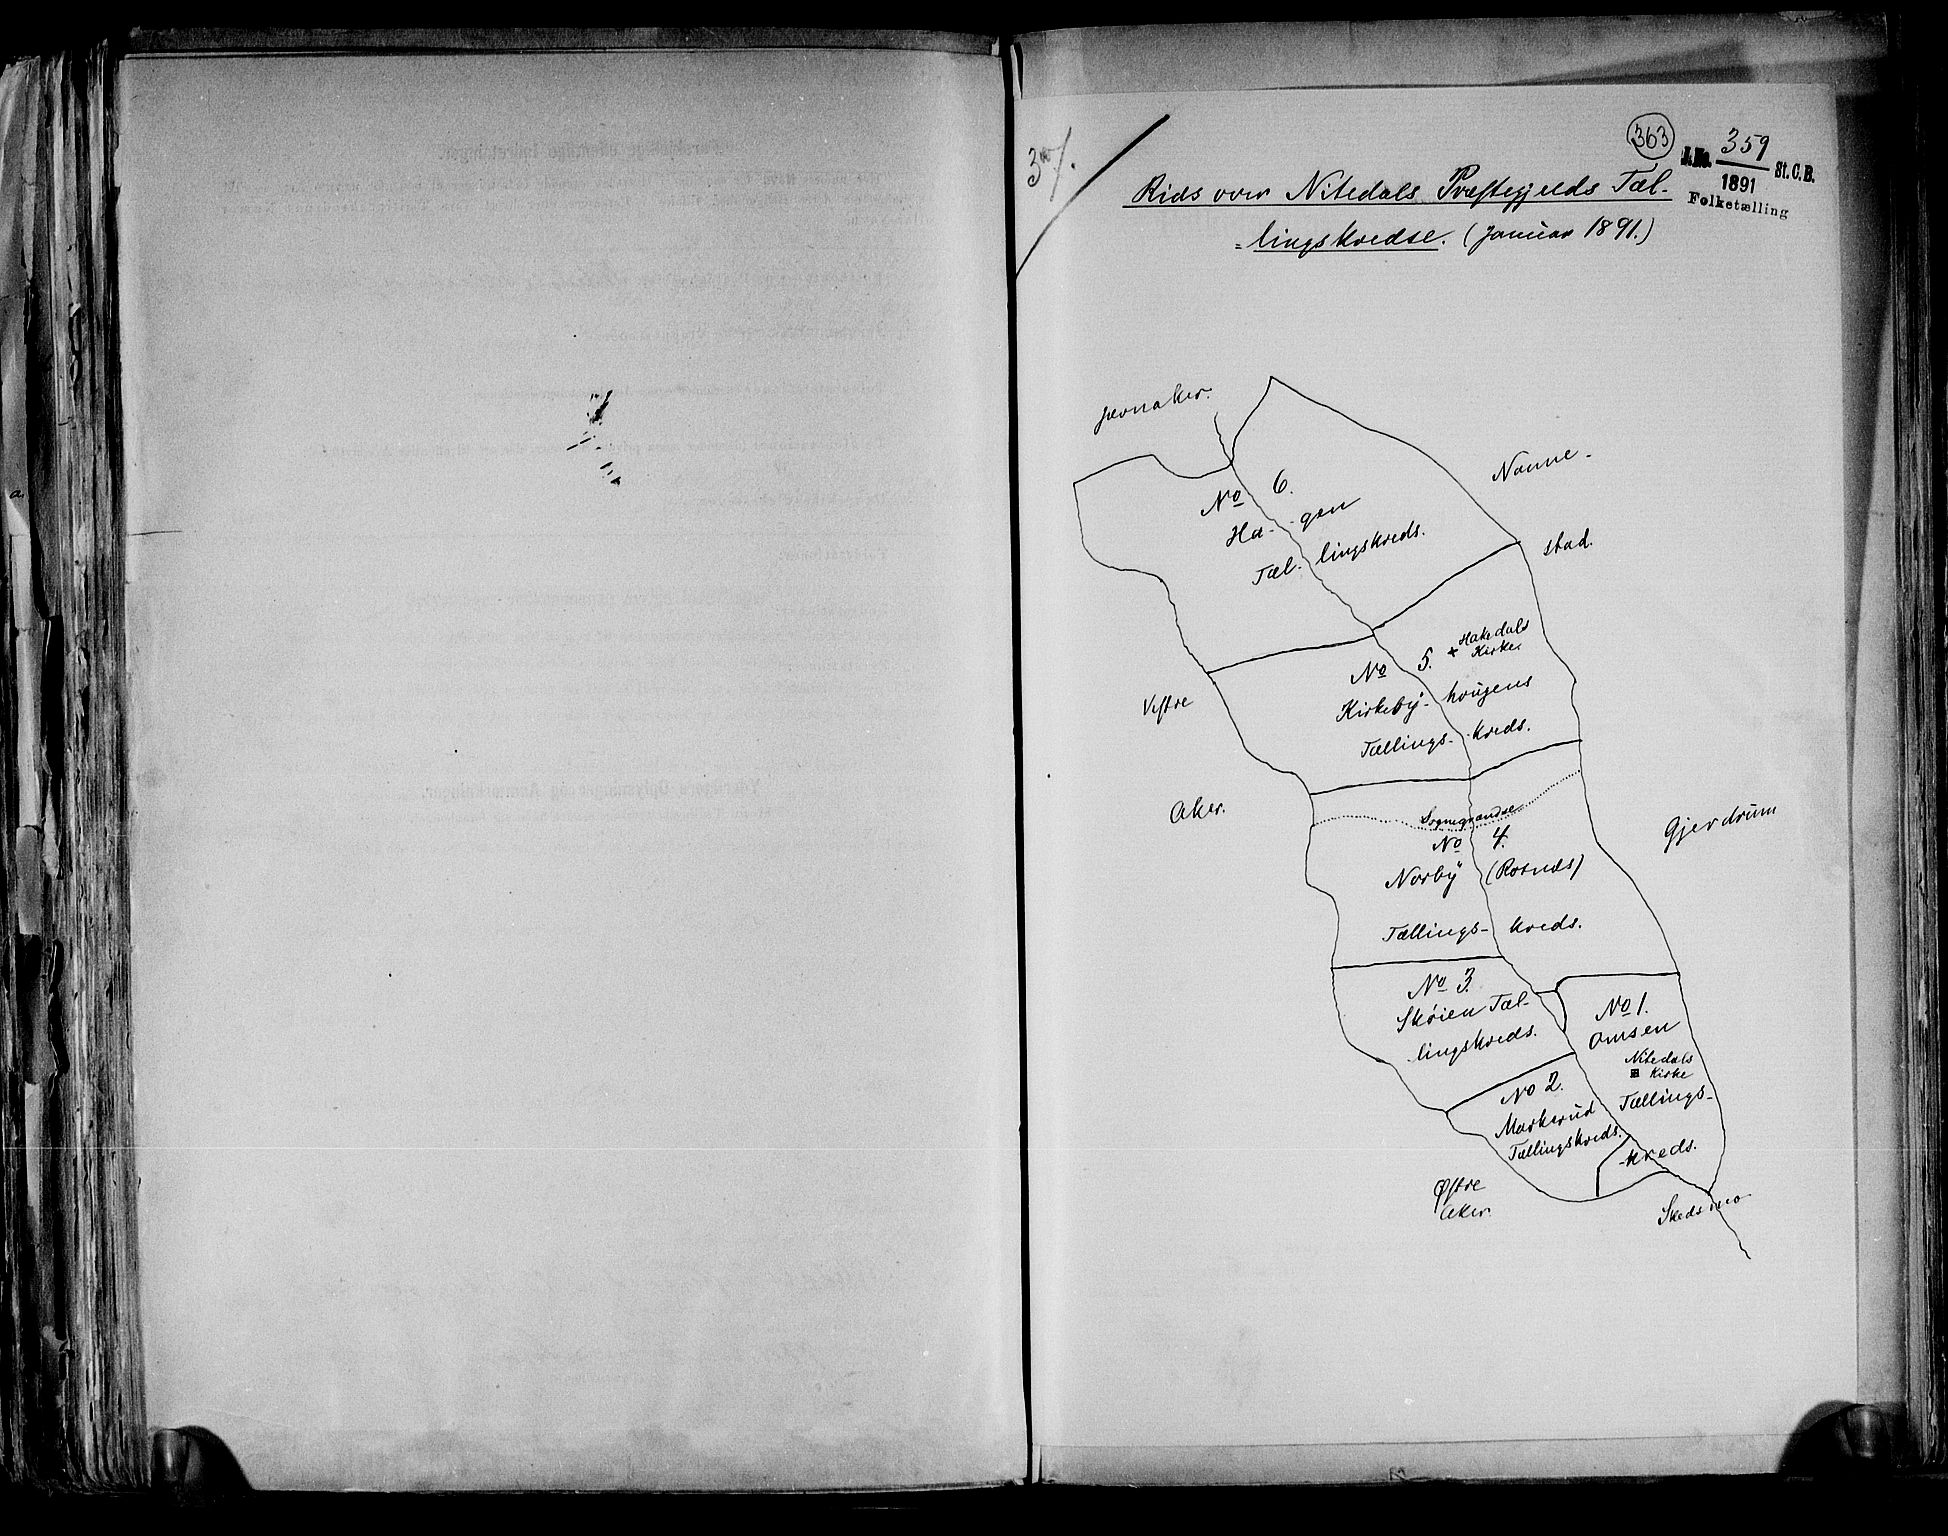 363
J.No. 359 St.C.B.
1891
Folketælling
Rids over Nitedals Præstegjelds Tæl-
=lingskredse. (Januar 1891.)
Jævnaker.
Nanne-
stad.
No 6.
Ha- gen
Tæl- lingskreds.
No 5.
Hakedals
Kirke.
Kirkeby- hougens
Tællings- kreds.
Vestre
Aker.
Gjerdrum
Sognegrændse
No 4.
Norby (Rotnæs)
Tællings- kreds.
No 3.
Skøien Tæl-
lingskreds.
No 1.
Omsen
Nitedals
Kirke
Tællings-
kreds.
No 2.
Markerud
Tællingskreds.
Østre
Aker.
Skedsmo